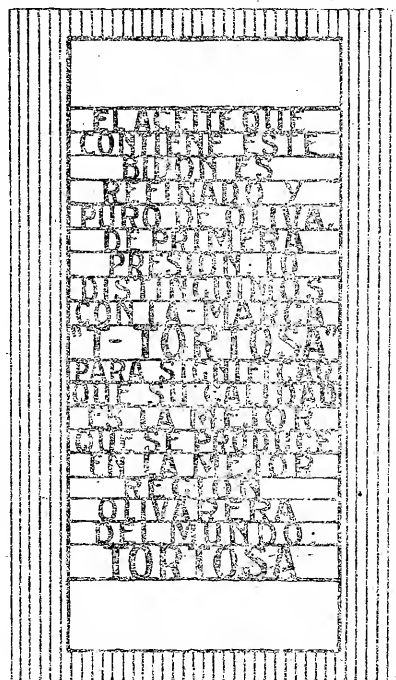 EL ACEITE QUE
CONTIENE ESTE
BIDON ES
REFINADO Y
PURO DE OLIVA,
DE PRIMERA
PRESION. LO
DISTINGUIMOS
CON LA MARCA
"1-TORTOSA"
PARA SIGNIFICAR
QUE SU CALIDAD
ES LA MEJOR
QUE SE PRODUCE
EN LA MEJOR
REGION
OLIVARERA
DEL MUNDO:
TORTOSA